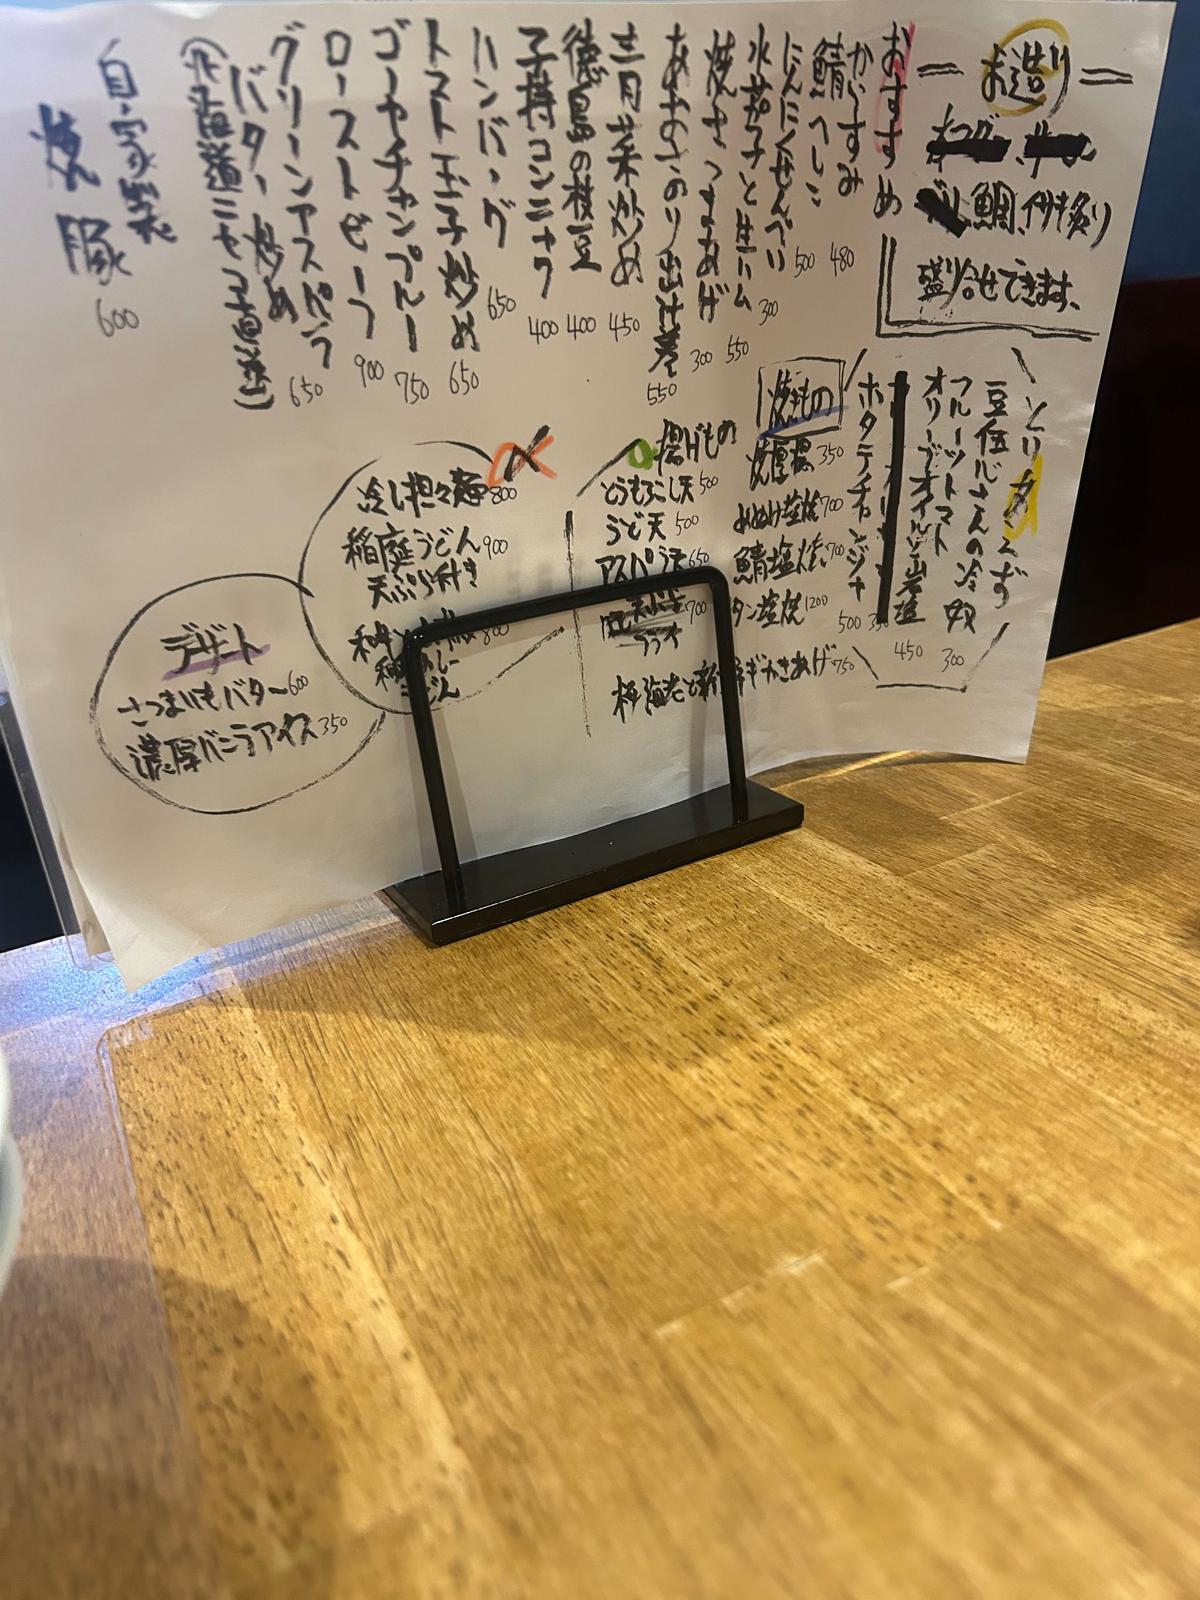 お造り
鯛、炙り
盛り合せできます、
おすすめ
からすみ 480
鯖へしこ 500
にんにくせんべい 300
水茄子と生ハム 550
焼きつまあげ 300
あおさのり出汁巻 550
青菜炒め 450
徳島の枝豆 400
子持コンニャク 400
ハンバーグ 650
トマト玉子炒め 650
ゴーヤチャンプルー 750
ローストビーフ 900
グリーンアスパラ
バター炒め 650
(北海道ニセコ直送)
自家製
焼豚 600
とりあえず
豆伍心さんの冷奴 300
フルーツトマト
オリーブオイルと岩塩 450
ホタテチャンジャ 500
焼きもの
焼厚揚 350
塩焼 700
鯖塩焼 700
タン塩焼 1200
揚げもの
とうもろこし天 500
うど天 500
アスパラ天 650
700
桜海老と新玉ねぎかきあげ 750
冷し担々麺 800
稲庭うどん 900
天ぷら付き
800
デザート
さつまいもバター 600
濃厚バニラアイス 350